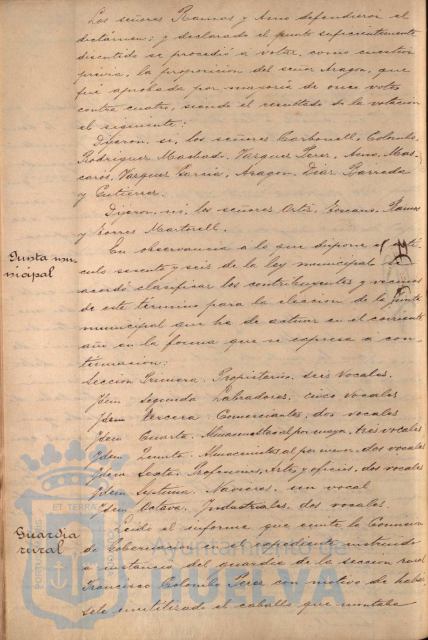 Los señores Ramos y Amo defendieron el
dictámen; y declarado el punto suficientemente
discutido se procedió a votar, como cuestion
prévia, la proposicion del señor Aragon, que
fué aprobada por mayoría de once votos
contra cuatro, siendo el resultado de la votacion
el siguiente:
Dijeron, si, los señores Carbonell, Colombo,
Rodriguez Machado, Vazquez Perez, Amo, Mas-
caros, Vazquez Garcia, Aragon, Diaz Barreda
y Gutierrez.
Dijeron, no, los señores Ortiz, Toscano, Ramos
y Torres Martinell.
Junta mu-
nicipal
En observancia a lo que dispone el artí-
culo sesenta y seis de la ley municipal se
acordó clasificar los contribuyentes y vecinos
de este término para la eleccion de la Junta
municipal que ha de actuar en el corriente
año en la forma que se expresa a con-
tinuacion:
Seccion Primera. Propietarios. seis Vocales.
Idem Segunda Labradores, cinco vocales
Idem Tercera. Comerciantes, dos vocales
Idem Cuarta. Almacenistas al por mayor, tres vocales
Idem Quinta. Almacenistas al por menor, dos vocales
Idem Sexta. Profesiones, Artes y oficios, dos vocales
Idem Septima. Navieros. un vocal
Idem Octava. Industriales. dos vocales.
Guardia
rural
Leido el informe que emite la Comision
de Gobernacion en el expediente instruido
a instancia del guardia de la seccion rural
Francisco Colombo Perez con motivo de habér-
sele inutilizado el caballo que montaba
Ayuntamiento de
HUELVA